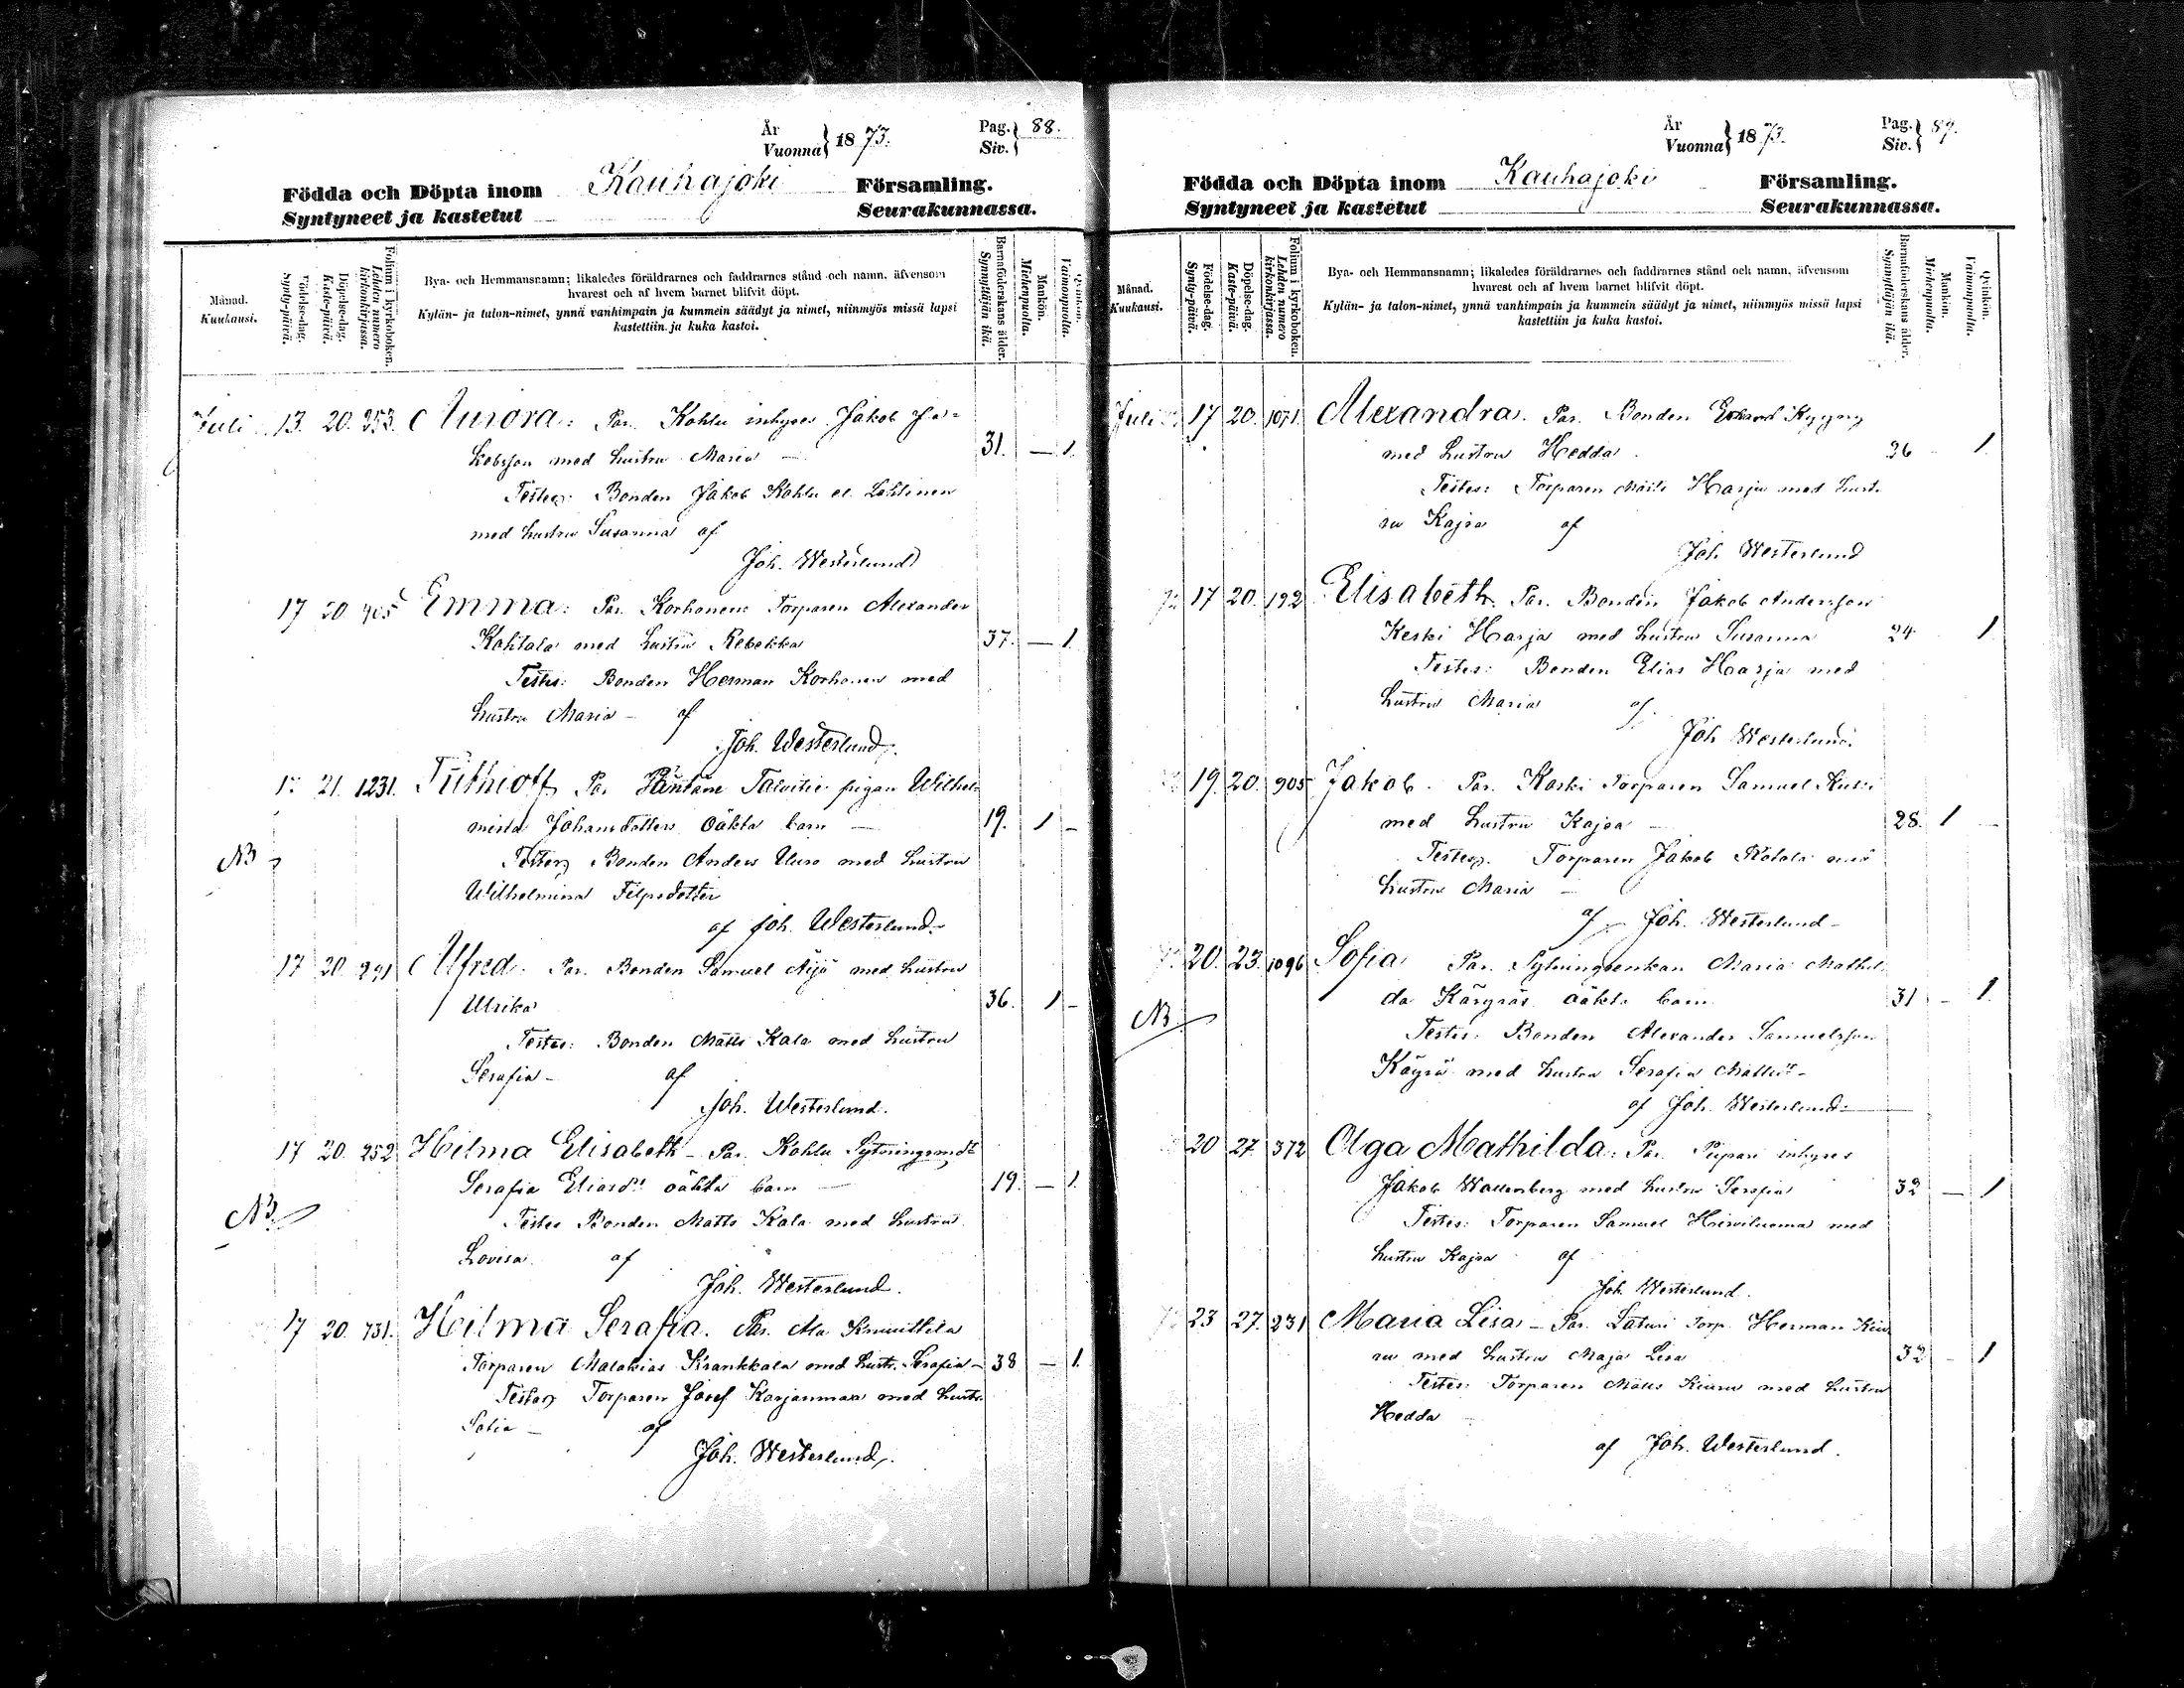 År
Vuonna } 1873.
Pag.
Siv. } 88.
Födda och Döpta inom Kauhajoki Församling.
Syntyneet ja kastetut Seurakunnassa.
Månad.
Kuukausi.
Födelse-dag.
Synty-päivä.
Döpelse-dag.
Kaste-päivä.
Folium i kyrkoboken.
Lehden numero kirkonkirjassa.
Bya- och Hemmansnamn; likaledes föräldrarnes och faddrarnes stånd och namn, äfvensom
hvarest och af hvem barnet blifvit döpt.
Kylän- ja talon-nimet, ynnä vanhimpain ja kummein säädyt ja nimet, niinmyös missä lapsi
kastettiin ja kuka kastoi.
Barnaföderskans ålder.
Synnyttäjän ikä.
Mankön.
Miehenpuolta.
Qvinkön.
Vaimonpuolta.
Juli 13. 20. 253. Aurora: Par. Kohlu inhyses Jakob Ja=
kobsson med hustru Maria — 31. — 1.
Testes: Bonden Jakob Kohlu el. Lehtinen
med hustru Susanna af
Joh. Westerlund
17 20 Emma: Par. Korhonen Torparen Alexander
Kohtala med hustru Rebekka 37. — 1.
Testes: Bonden Herman Korhonen med
hustru Maria — af
Joh. Westerlund.
21. 1231. Par. Päntäne Talvitie pigan Wilhel
mina Johansdotters oäkta barn — 19. 1 —
NB
Testes Bonden Anders Uuro med hustru
Wilhelmina Filpsdotter
af Joh. Westerlund.
17 20. 291 Alfred. Par. Bonden Samuel Äijö med hustru
Ulrika 36. 1 —
Testes: Bonden Matts Kala med hustru
Serafia — af
Joh. Westerlund.
17 20. 252 Hilma Elisabeth — Par. Kohlu
Serafia Eliasdr oäkta barn — 19. — 1.
NB.
Testes Bonden Matts Kala med hustru
Lovisa. af
Joh. Westerlund.
17 20. 731. Hilma Serafia. Par. Ala Knuuttila
Torparen Malakias Krankkala med hustr. Serafia — 38 — 1.
Testes Torparen Josef Karjanmaa med hustr.
Sofia — af
Joh. Westerlund.
År
Vuonna } 1873.
Pag.
Siv. } 89.
Födda och Döpta inom Kauhajoki Församling.
Syntyneet ja kastetut Seurakunnassa.
Månad.
Kuukausi.
Födelse-dag.
Synty-päivä.
Döpelse-dag.
Kaste-päivä.
Folium i kyrkoboken.
Lehden numero kirkonkirjassa.
Bya- och Hemmansnamn; likaledes föräldrarnes och faddrarnes stånd och namn, äfvensom
hvarest och af hvem barnet blifvit döpt.
Kylän- ja talon-nimet, ynnä vanhimpain ja kummein säädyt ja nimet, niinmyös missä lapsi
kastettiin ja kuka kastoi.
Barnaföderskans ålder.
Synnyttäjän ikä.
Mankön.
Miehenpuolta.
Qvinkön.
Vaimonpuolta.
Juli 17 20. 1071. Alexandra. Par. Bonden
med hustru Hedda. 36 1
Testes: Torparen Matts Harju med hust
ru Kajsa af
Joh Westerlund
17 20. 192 Elisabeth. Par. Bonden Jakob Andersson
Keski Harja med hustru Susanna 24 1
Testes: Bonden Elias Harja med
hustru Maria af
Joh Westerlund.
19. 20. 905 Jakob. Par. Koski Torparen Samuel
med hustru Kajsa — 28. 1 —
Testes. Torparen Jakob med
hustru Maria —
af Joh. Westerlund —
20. 23. 1096 Sofia Par. Sytningsenkan Maria Mathil
da oäkta barn 31 — 1
NB
Testes: Bonden Alexander Samuelsson
Käyrä med hustru Serafia
af Joh. Westerlund.
20 27. 372 Olga Mathilda. Par. Piipari inhyses
Jakob Wallenberg med hustru Serafia 32 — 1
Testes: Torparen Samuel Hirviluoma med
hustru Kajsa af
Joh Westerlund.
23 27. 231 Maria Lisa — Par. Laturi Torp. Herman Kiu
ru med hustru Maja Lisa 32 — 1
Testes: Torparen Matts Kiuru med hustru
Hedda
af Joh. Westerlund.